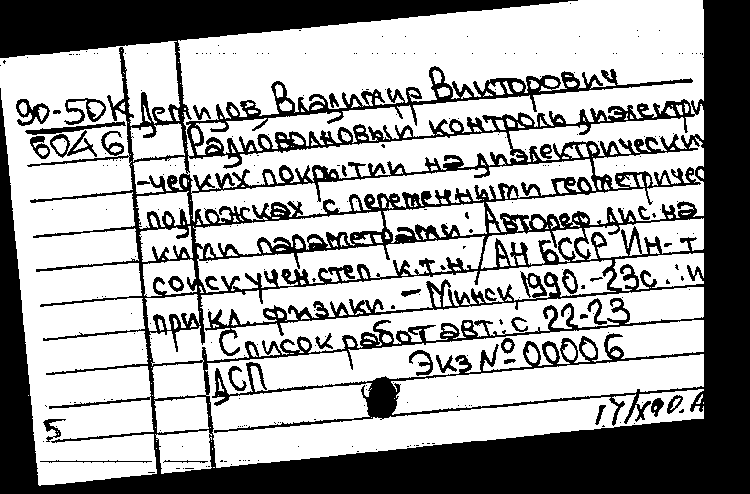 90-50К Демидов Владимир Викторович
5046 Радиоволновый контроль диэлектри
-ческих покрытий на диэлектрических
подложках с переменными геометричес
кими параметрами: Автореф. дис. на
соиск. учен. степ. к.т.н. / АН БССР, Ин-т
прикл. физики. - Минск, 1990. - 23с. : и
Список работ авт.: с. 22-23
ДСП Экз № 00006
5